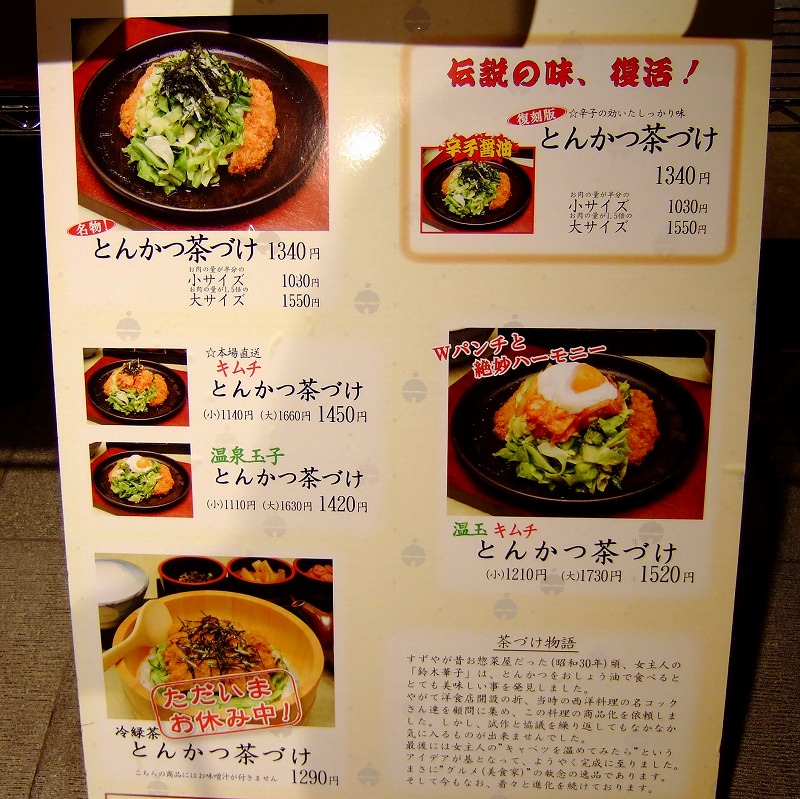 名物!
とんかつ茶づけ 1340円
お肉の量が半分の
小サイズ 1030円
お肉の量が1.5倍の
大サイズ 1550円
☆本場直送
キムチ
とんかつ茶づけ
(小)1140円 (大)1660円 1450円
温泉玉子
とんかつ茶づけ
(小)1110円 (大)1630円 1420円
ただいま
お休み中!
冷緑茶
とんかつ茶づけ
こちらの商品にはお味噌汁が付きません 1290円
伝説の味、復活!
復刻版 ☆辛子の効いたしっかり味
辛子醤油
とんかつ茶づけ
1340円
お肉の量が半分の
小サイズ 1030円
お肉の量が1.5倍の
大サイズ 1550円
Wパンチと
絶妙ハーモニー
温玉 キムチ
とんかつ茶づけ
(小)1210円 (大)1730円 1520円
茶づけ物語
すずやが昔お惣菜屋だった(昭和30年)頃、女主人の
「鈴木華子」は、とんかつをおしょう油で食べると
とても美味しい事を発見しました。
やがて洋食店開設の折、当時の西洋料理の名コック
さん達を顧問に集め、この料理の商品化を依頼しま
した。しかし、試作と協議を繰り返してもなかなか
気に入るものが出来ませんでした。
最後には女主人の"キャベツを温めてみたら"という
アイデアが基となって、ようやく完成に至りました。
まさに"グルメ(美食家)"の執念の逸品であります。
そして今もなお、着々と進化を続けております。